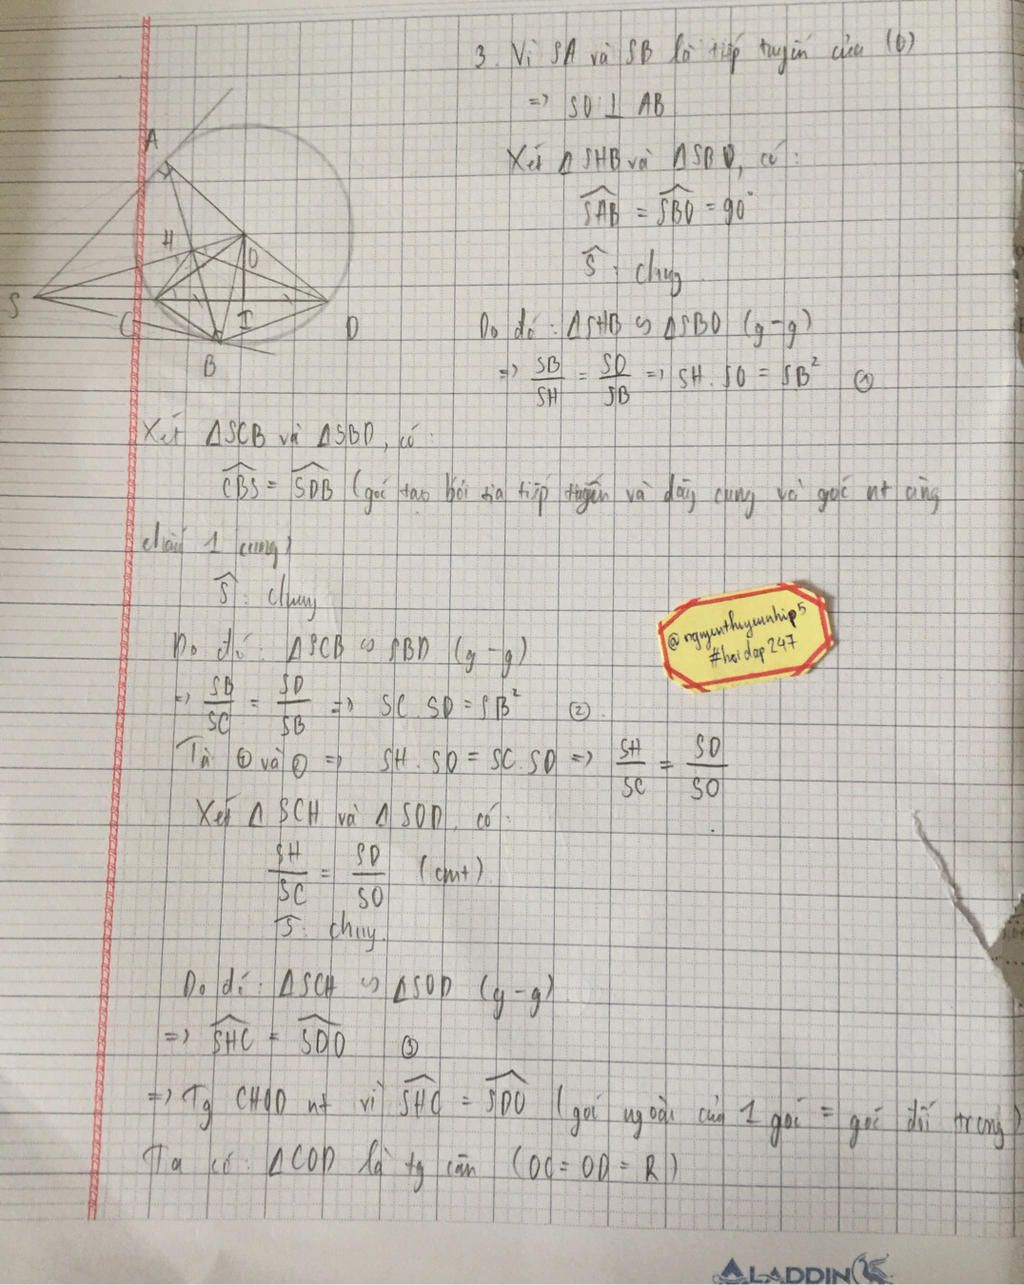 3. Vì SA và SB là tiếp tuyến của (O)
=> SO ⊥ AB
Xét ΔSHB và ΔSBO, có:
\widehat{SAB} = \widehat{SBO} = 90°
\widehat{S}: chung
Do đó: ΔSHB ∽ ΔSBO (g-g)
=> \frac{SB}{SH} = \frac{SO}{SB} => SH.SO = SB² ①
A
H
O
S
C
I
D
B
Xét ΔSCB và ΔSBD, có:
\widehat{CBS} = \widehat{SDB} (góc tạo bởi tia tiếp tuyến và dây cung và góc nt cùng
chắn 1 cung)
\widehat{S}: chung
Do đó: ΔSCB ∽ SBD (g-g)
=> \frac{SB}{SC} = \frac{SD}{SB} => SC.SD = SB² ②
Từ ① và => SH.SO = SC.SD => \frac{SH}{SC} = \frac{SD}{SO}
Xét ΔSCH và ΔSOD, có:
\frac{SH}{SC} = \frac{SD}{SO} (cmt)
\widehat{S}: chung
Do đó: ΔSCH ∽ ΔSOD (g-g)
=> \widehat{SHC} = \widehat{SDO} ③
=> Tg CHOD nt vì \widehat{SHC} = \widehat{SDO} (góc ngoài của 1 góc = góc đối trong)
Ta có: ΔCOD là tg cân (OC = OD = R)
@nguyenthuyennhip5
#hoidap247
ALADDIN